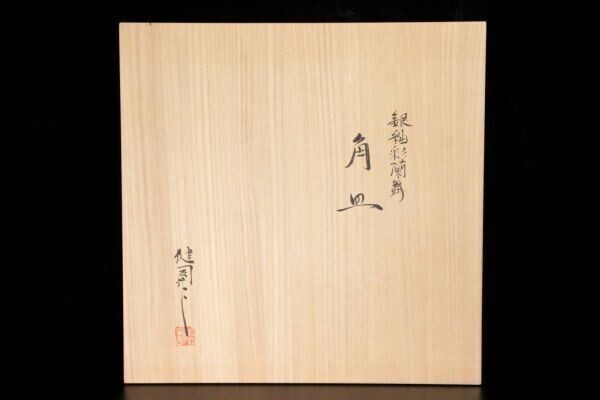 銀釉彩蘭舞
角皿
健司